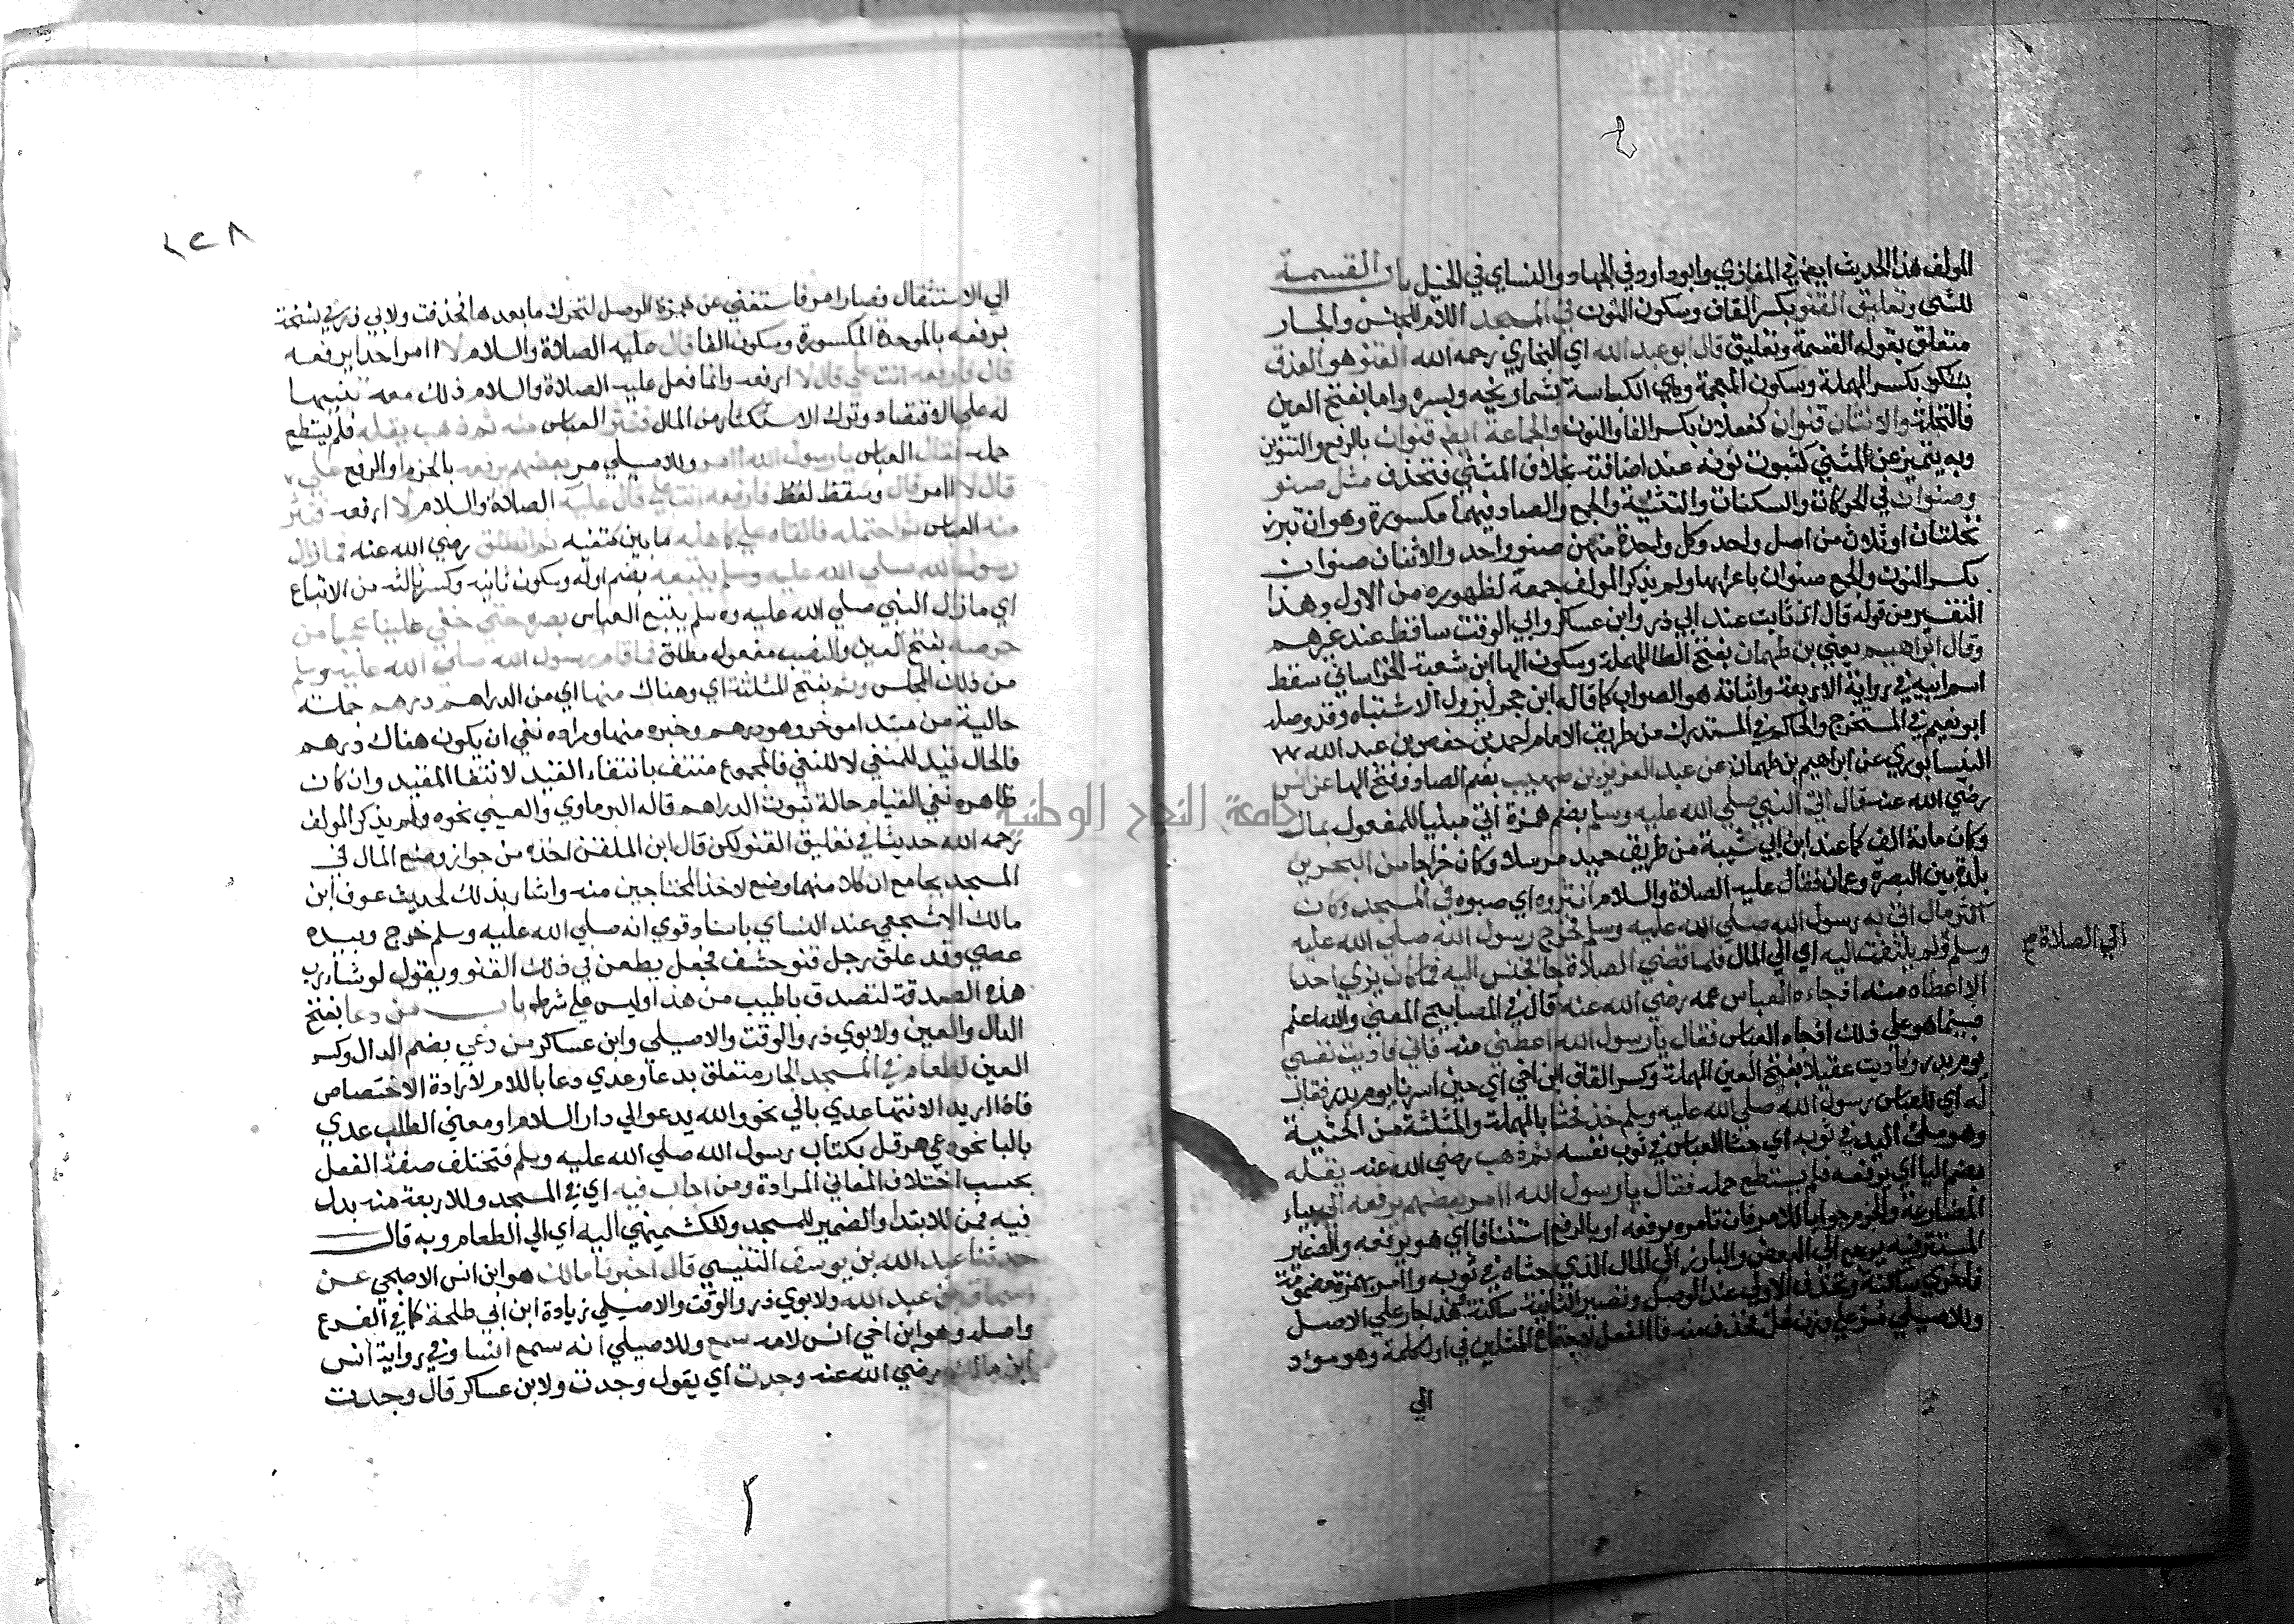 المولف هذا الحديث ايضا في المغازي وابوداود في الجهاد والنساي في الخيل باب القسمة
للشي وتعليق القنو بكسر القاف وسكون النون في المسجد اللام للجنس والجار
متعلق بقوله القسمة وتعليق قال ابو عبد الله اي البخاري رحمه الله القنو هو العذق
بكسر المهملة وسكون المعجمة وهي الكباسة بشماريخه وبسره واما بفتح العين
فالنخلة والاثنان قنوان كفعلان بكسر الفا والنون والجماعة ايضا قنوان بالرفع والتنوين
وبه يتميز عن المثني كثبوت نونه عند اضافته بخلاف المثني فتحذف مثل صنو
وصنوان في الحركات والسكنات والتثنية والجمع والصاد فيهما مكسورة وهو ان تبرز
نخلتان او ثلاث من اصل واحد وكل واحدة منهن صنو واحد والاثنان صنوان
بكسر النون والجمع صنوان باعرابها ولم يذكر المولف جمعه لظهوره من الاول وهذا
التفسير من قوله قال الي ثابت عند ابي ذر وابن عساكر وابي الوقت ساقط عند غيرهم
وقال ابراهيم يعني بن طهمان بفتح الطا المهملة وسكون الها ابن شعبة الخراساني سقط
اسم ابيه في رواية الاربعة واثباته هو الصواب كما قاله ابن حجر ليزول الاشتباه وقد وصله
ابو نعيم في المستخرج والحاكم في المستدرك من طريق الامام احمد بن حفص بن عبد الله
النيسابوري عن ابراهيم بن طهمان عن عبد العزيز بن صهيب بضم الصاد وفتح الها عن انس
رضي الله عنه قال اتي النبي صلي الله عليه وسلم بضم همزة اتي مبنيا للمفعول بمال
وكان ماية الف كما عند ابن ابي شيبة من طريق حميد مرسلا وكان خراجا من البحرين
بلدة بين البصرة وعمان فقال عليه الصلاة والسلام انثروه اي صبوه في المسجد وكان
اكثر مال اتي به رسول الله صلي الله عليه وسلم فخرج رسول الله صلي الله عليه
الي الصلاة صح
وسلم ولم يلتفت اليه اي الي المال فلما قضي الصلاة جا فجلس اليه فما كان يري احدا
الا اعطاه منه اذ جاءه العباس عمه رضي الله عنه قال في المصابيح المعني والله اعلم
فبينما هو علي ذلك اذ جاه العباس فقال يا رسول الله اعطني منه فاني فاديت نفسي
يوم بدر وفاديت عقيلا بفتح العين المهملة وكسر القاف ابن اخي اي حين اسرنا يوم بدر فقال
له اي للعباس رسول الله صلي الله عليه وسلم خذ فحثا بالمهملة والمثلثة من الحثية
وهو ملئ اليد في ثوبه اي حثا العباس في ثوب نفسه ثم ذهب رضي الله عنه يقله
بضم اليا اي يرفعه فلم يستطع حمله فقال يا رسول الله اامر بعضهم يرفعه الي بياء
المضارعة والجزم جوابا للامر فان تامره يرفعه او بالرفع استئنافا اي هو يرفعه والضمير
المستتر فيه يرجع الي البعض والبارز الي المال الذي حثاه في ثوبه واامر بهمزة مضمومة
فاخري ساكنة وتحذف الاولي عند الوصل وتصير الثانية ساكنة هذا جار علي الاصل
وللاصيلي مر علي وزن عل فحذف منه فا الفعل لاجتماع المثلين في اول كلمة وهو مؤد
الي
١٢٨
الي الاستثقال فصار امر فاستغني عن همزة الوصل لتحرك ما بعدها فحذفت ولابي ذر في نسخة
برفعه بالموحدة المكسورة وسكون الفا قال عليه الصلاة والسلام لا اامر احدا يرفعه
قال فارفعه انت علي قال لا ارفعه وانما فعل عليه الصلاة والسلام ذلك معه تنبيها
له علي الاقتصاد وترك الاستكثار من المال فنثر العباس منه ثم ذهب يقله فلم يستطع
حمله فقال العباس يا رسول الله اامر وللاصيلي مر بعضهم يرفعه بالجزم او الرفع علي
قال لا اامر قال وسقط لفظ فارفعه انت علي قال عليه الصلاة والسلام لا ارفعه فنثر
منه العباس ثم احتمله فالقاه علي كاهله ما بين كتفيه ثم انطلق رضي الله عنه فما زال
رسول الله صلي الله عليه وسلم يتبعه بضم اوله وسكون ثانيه وكسر ثالثه من الاتباع
اي ما زال النبي صلي الله عليه وسلم يتبع العباس بصره حتي خفي علينا عجبا من
حرصه بفتح العين والنصب مفعول مطلق فما قام رسول الله صلي الله عليه وسلم
من ذلك المجلس وثم بفتح المثلثة اي وهناك منها اي من الدراهم درهم جملة
حالية من مبتدا موخر وهو درهم وخبره منها ومراده نفي ان يكون هناك درهم
فالحال قيد للمنفي لا للنفي فالمجموع منتف بانتفاء القيد لانتفا المقيد وان كان
ظاهره نفي القيام حالة ثبوت الدراهم قاله البرماوي والعيني نحوه ولم يذكر المولف
رحمه الله حديثا في تعليق القنو لكن قال ابن الملقن اخذه من جواز وضع المال في
المسجد بجامع ان كلا منهما وضع لاخذ المحتاجين منه واشار بذلك لحديث عوف ابن
مالك الاشجعي عند النساي باسناد قوي انه صلي الله عليه وسلم خرج وبيده
عصي وقد علق رجل قنو حشف فجعل يطعن في ذلك القنو ويقول لو شاء رب
هذه الصدقة لتصدق باطيب من هذا وليس علي شرطه باب من دعا بفتح
الدال والعين ولابوي ذر والوقت والاصيلي وابن عساكر من دعي بضم الدال وكسر
العين لطعام في المسجد الجار متعلق بدعا وعدي دعا باللام لارادة الاختصاص
فاذا اريد الانتها عدي بالي نحو والله يدعو الي دار السلام او معني الطلب عدي
بالبا نحو دعي هرقل بكتاب رسول الله صلي الله عليه وسلم فتختلف صلة الفعل
بحسب اختلاف المعاني المرادة ومن اجاب فيه اي في المسجد وللاربعة منه بدل
فيه فمن للابتدا والضمير للمسجد وللكشميهني اليه اي الي الطعام وبه قال
حدثنا عبد الله بن يوسف التنيسي قال اخبرنا مالك هو ابن انس الاصبحي عن
اسحاق بن عبد الله ولابوي ذر والوقت والاصيلي زيادة ابن ابي طلحة كما في الفرع
واصله وهو ابن اخي انس لامه سمع وللاصيلي انه سمع انسا وفي رواية انس
ابن مالك رضي الله عنه وجدت اي يقول وجدت ولابن عساكر قال وجدت
جامعة النجاح الوطنية